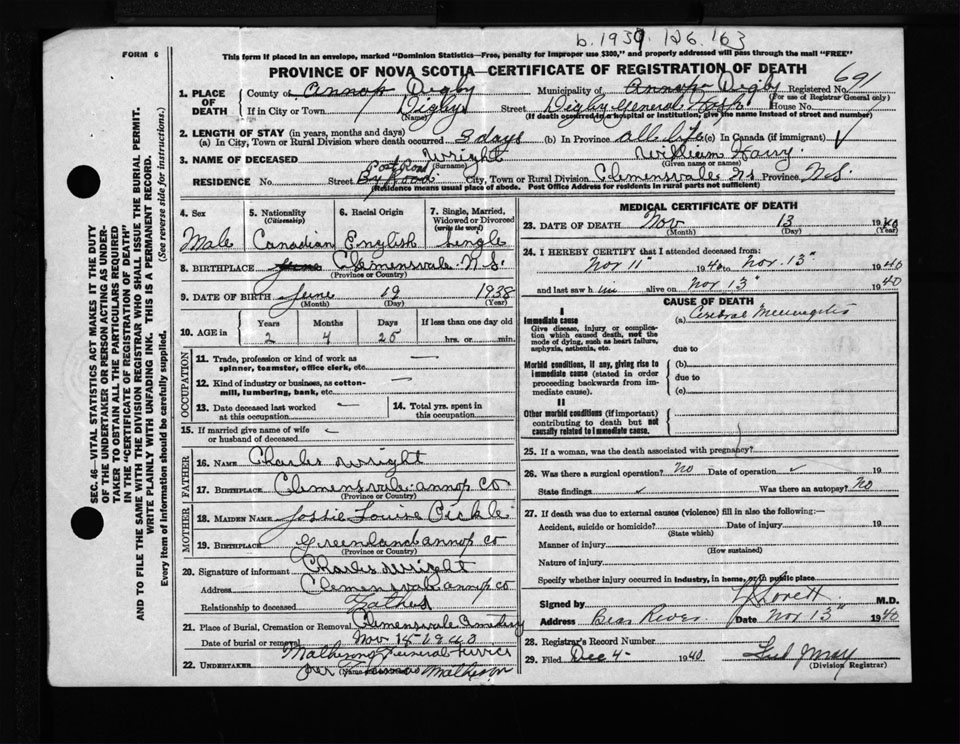 b. 1939. 126. 163
FORM 6
This form if placed in an envelope, marked "Dominion Statistics—Free, penalty for improper use $300," and properly addressed will pass through the mail "FREE"
PROVINCE OF NOVA SCOTIA—CERTIFICATE OF REGISTRATION OF DEATH
1. PLACE OF DEATH County of Annap Digby Municipality of Annap Digby Registered No. 691
(For use of Registrar General only)
If in City or Town Digby (Name) Street Digby General Hosp House No.
(If death occurred in a hospital or institution, give the name instead of street and number)
2. LENGTH OF STAY (in years, months and days)
(a) In City, Town or Rural Division where death occurred 3 days (b) In Province all life (c) In Canada (if immigrant)
3. NAME OF DECEASED Wright (Surname) William Harry. (Given name or names)
RESIDENCE No. Street Post Road City, Town or Rural Division Clemensvale NS Province N.S.
(Residence means usual place of abode. Post Office Address for residents in rural parts not sufficient)
4. Sex Male
5. Nationality (Citizenship) Canadian
6. Racial Origin English
7. Single, Married, Widowed or Divorced (write the word) Single
8. BIRTHPLACE Clemensvale N.S.
(Province or Country)
9. DATE OF BIRTH June 19 1938
(Month) (Day) (Year)
10. AGE in Years 2 Months 4 Days 25 If less than one day old hrs. or min.
OCCUPATION
11. Trade, profession or kind of work as spinner, teamster, office clerk, etc. —
12. Kind of industry or business, as cotton-mill, lumbering, bank, etc. —
13. Date deceased last worked at this occupation —
14. Total yrs. spent in this occupation
15. If married give name of wife or husband of deceased
FATHER
16. NAME Charles Wright
17. BIRTHPLACE Clemensvale annap Co
(Province or Country)
MOTHER
18. MAIDEN NAME Jossie Louise Pickle
19. BIRTHPLACE Greenland annap co
(Province or Country)
20. Signature of informant Charles Wright
Address Clemensvale annap co
Relationship to deceased Father
21. Place of Burial, Cremation or Removal Clemensvale Cemetery
Date of burial or removal Nov 15-1940
22. UNDERTAKER Mathesons Funeral Service
per Thomas Matheson
MEDICAL CERTIFICATE OF DEATH
23. DATE OF DEATH Nov 13 1940
(Month) (Day) (Year)
24. I HEREBY CERTIFY that I attended deceased from:
Nov 11" 1940 to Nov. 13" 1940
and last saw h im alive on Nov 13" 1940
CAUSE OF DEATH
I
Immediate cause
Give disease, injury or complication which caused death, not the mode of dying, such as heart failure, asphyxia, asthenia, etc.
(a) Cerebral Meningitis
due to
Morbid conditions, if any, giving rise to immediate cause (stated in order proceeding backwards from immediate cause).
(b)
due to
(c)
II
Other morbid conditions (if important) contributing to death but not causally related to immediate cause.
25. If a woman, was the death associated with pregnancy?
26. Was there a surgical operation? No Date of operation 19
State findings Was there an autopsy? No
27. If death was due to external causes (violence) fill in also the following:—
Accident, suicide or homicide? Date of injury 19
(State which)
Manner of injury
(How sustained)
Nature of injury
Specify whether injury occurred in industry, in home, or in public place
Signed by Lovett M.D.
Address Bear River Date Nov 13" 1940
28. Registrar's Record Number
29. Filed Dec 4- 1940
(Division Registrar)
SEC. 46—VITAL STATISTICS ACT MAKES IT THE DUTY OF THE UNDERTAKER OR PERSON ACTING AS UNDERTAKER TO OBTAIN ALL THE PARTICULARS REQUIRED IN THE "CERTIFICATE OF REGISTRATION OF DEATH"
AND TO FILE THE SAME WITH THE DIVISION REGISTRAR WHO SHALL ISSUE THE BURIAL PERMIT.
WRITE PLAINLY WITH UNFADING INK. THIS IS A PERMANENT RECORD.
Every item of information should be carefully supplied. (See reverse side for instructions.)